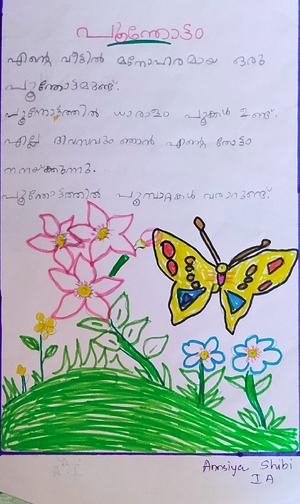 പൂന്തോട്ടം
എന്റെ വീട്ടിൽ മനോഹരമായ ഒരു
പൂന്തോട്ടമുണ്ട്.
പൂന്തോട്ടത്തിൽ ധാരാളം പൂക്കൾ ഉണ്ട്.
എല്ലാ ദിവസവും ഞാൻ എന്റെ തോട്ടം
നനയ്ക്കുന്നു.
പൂന്തോട്ടത്തിൽ പൂമ്പാറ്റകൾ വരാറുണ്ട്.
Annsiya Shibi
I A